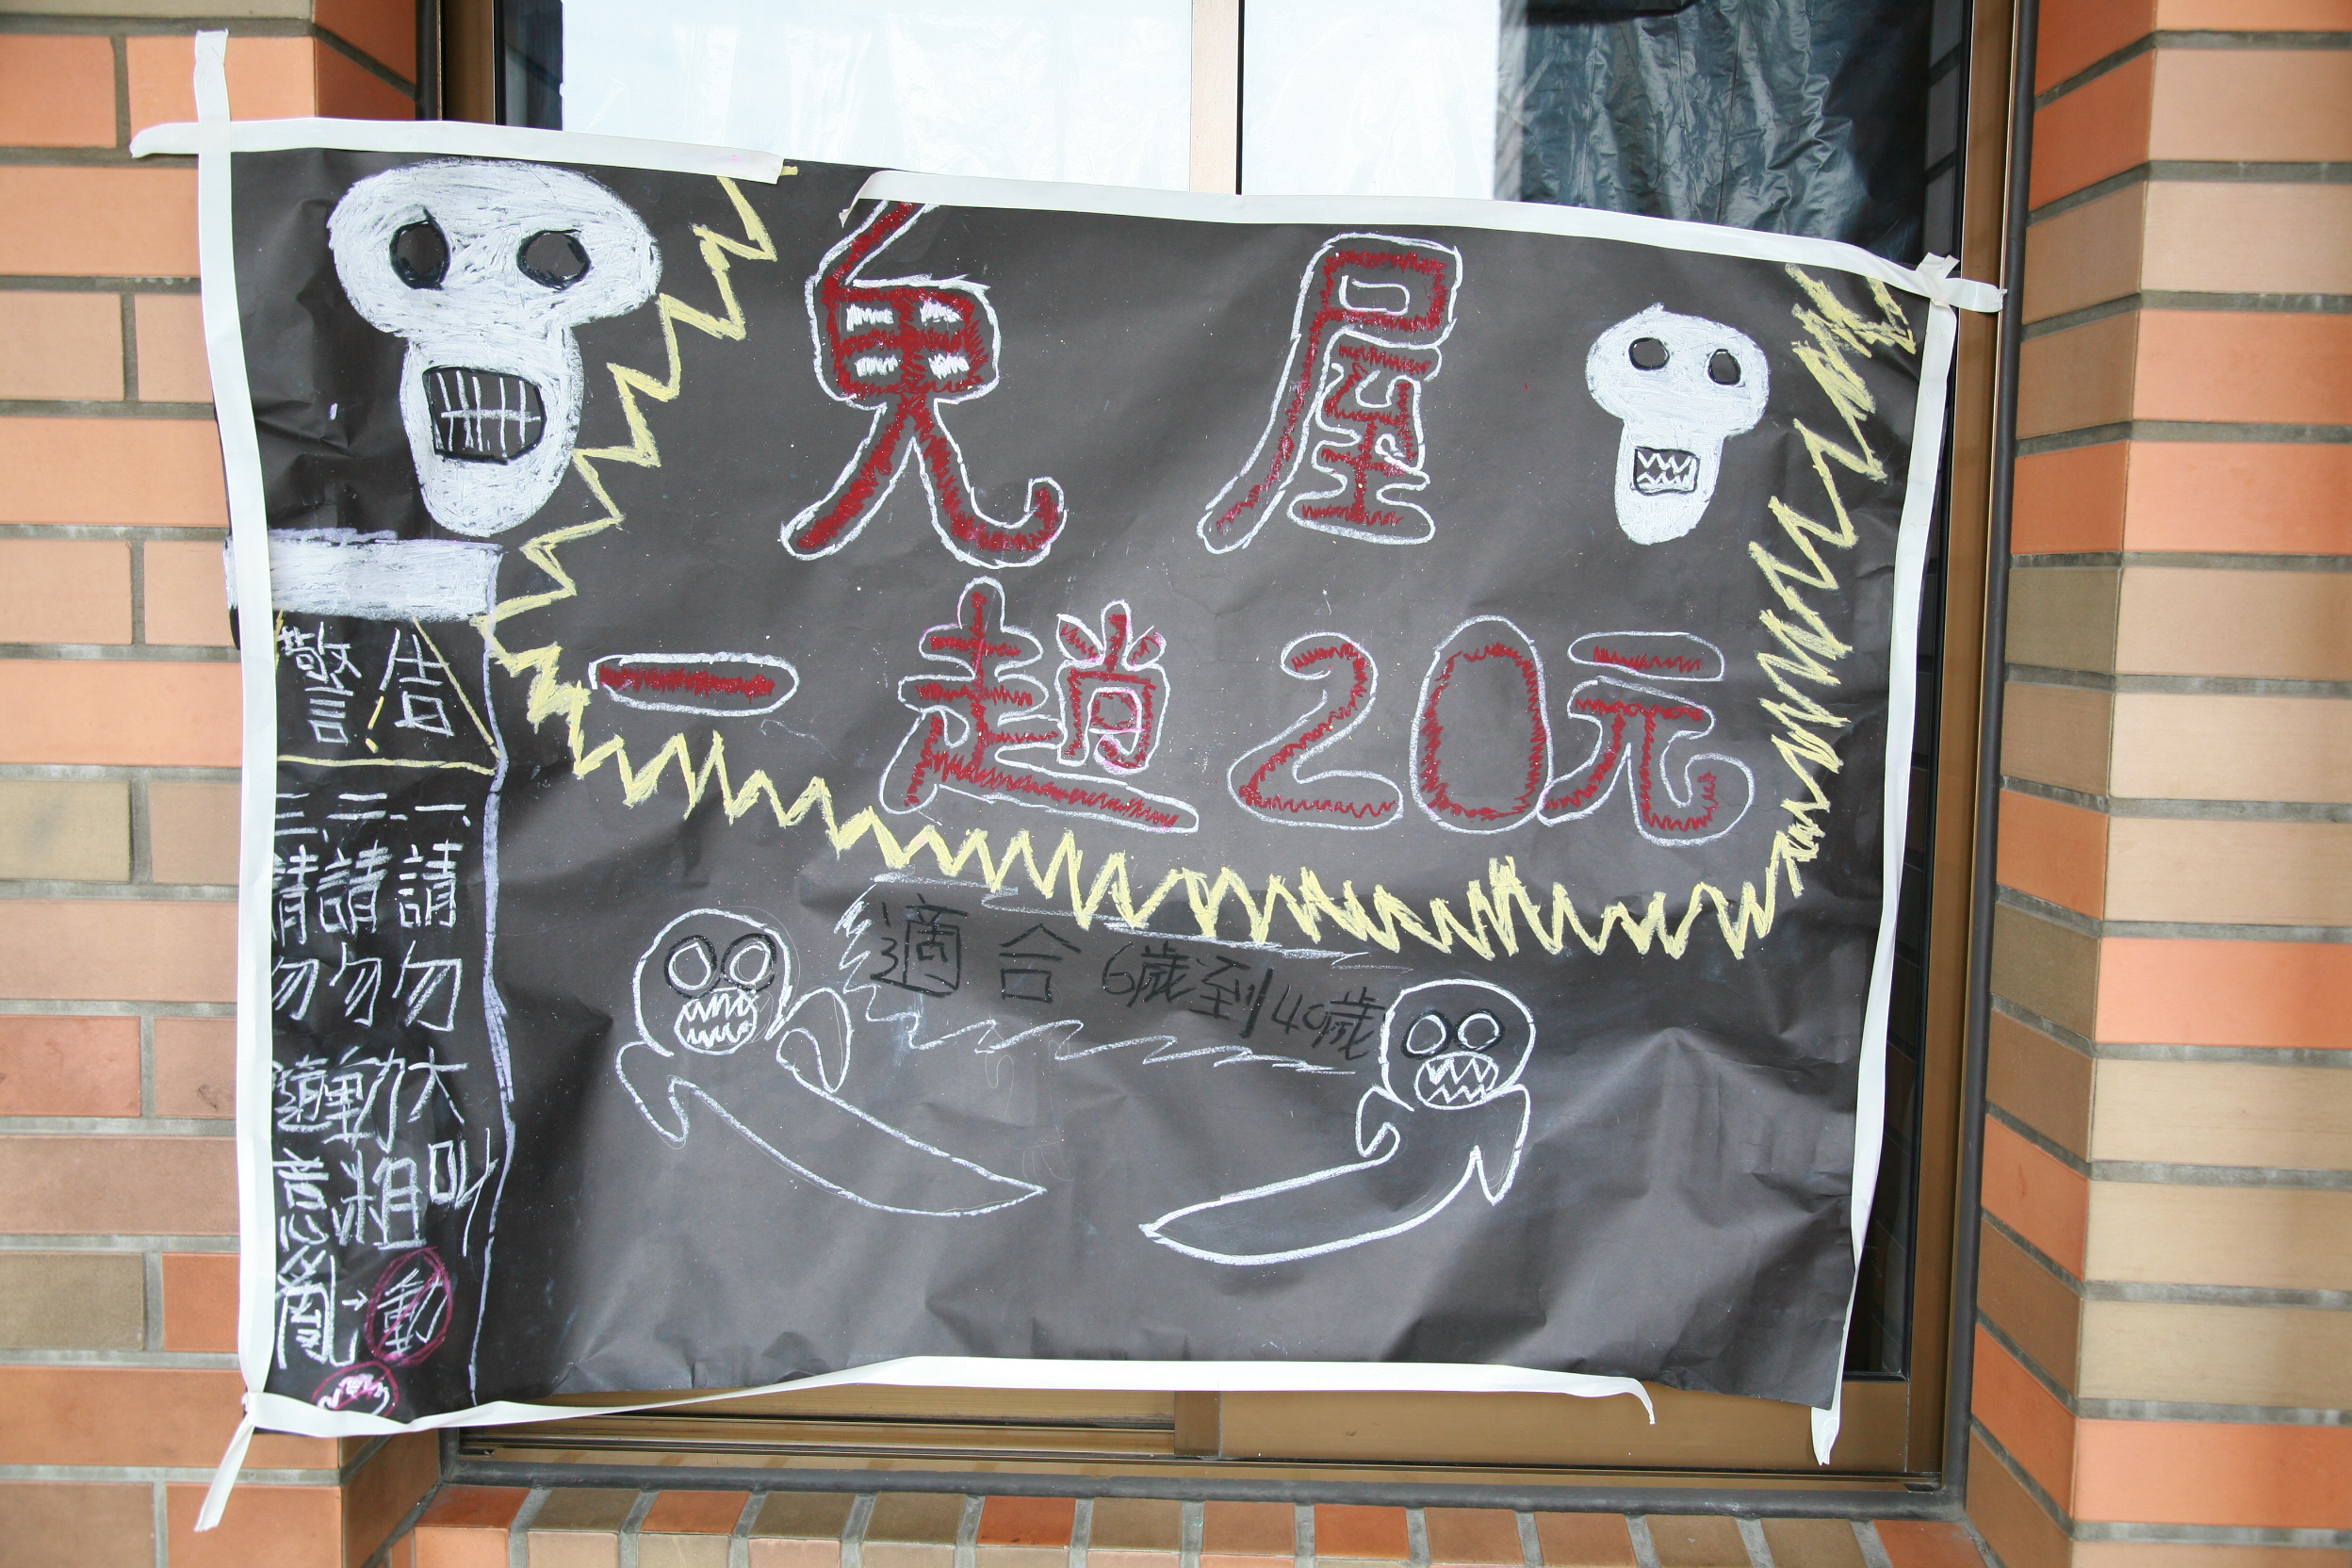 鬼屋
一趟20元
適合6歲到40歲
警告!
一、請勿大叫
二、請勿動粗
三、請勿隨意亂→動